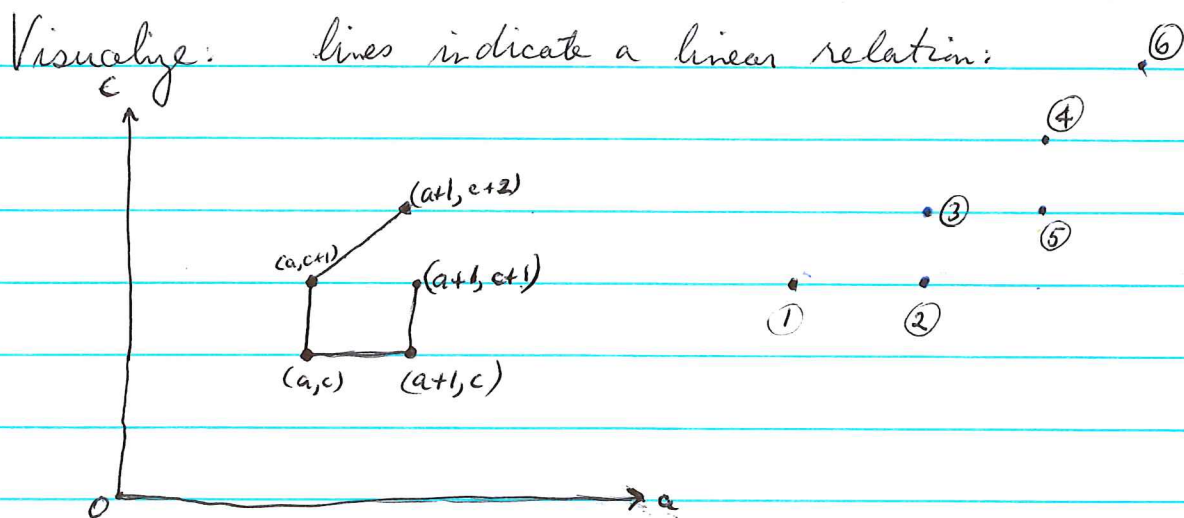 Visualize: lines indicate a linear relation:
⑥
c
④
(a+1, c+2)
③
⑤
(a, c+1)
(a+1, c+1)
①
②
(a,c)
(a+1, c)
0
a